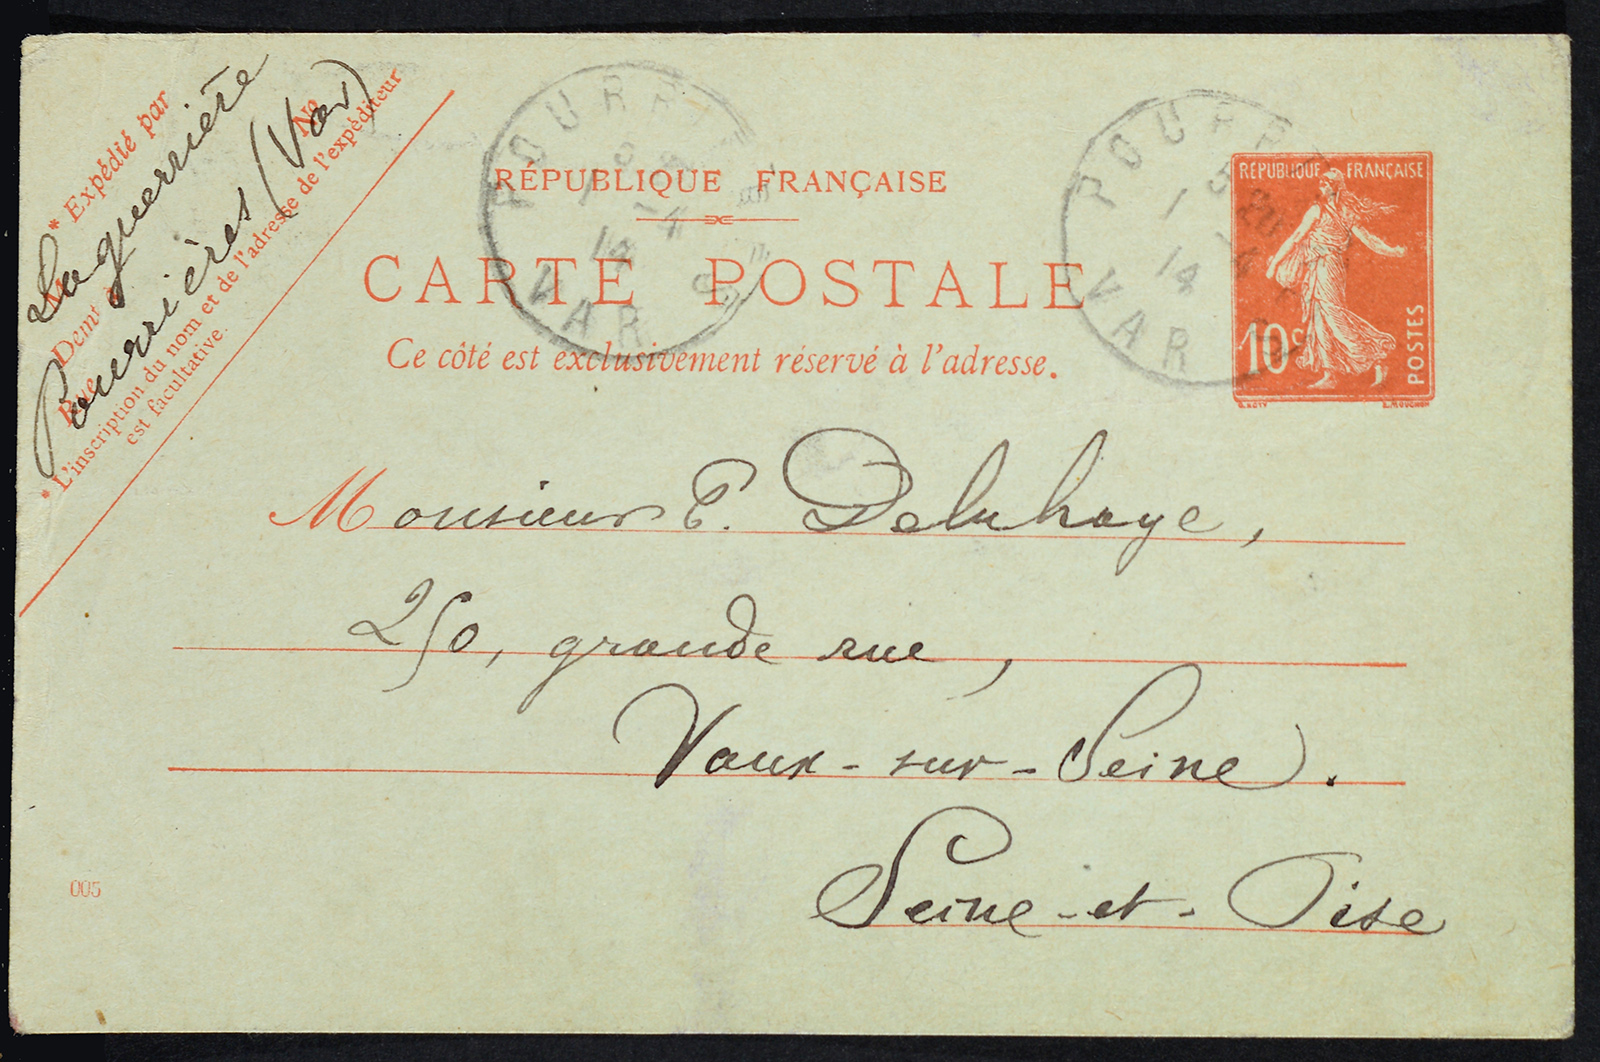 * Expédié par
Laguerrière
M
Demt à
Pourrières (Var)
Rue
No
* L'inscription du nom et de l'adresse de l'expéditeur
est facultative.
RÉPUBLIQUE FRANÇAISE
CARTE POSTALE
Ce côté est exclusivement réservé à l'adresse.
POURRI
14
VAR
POURR
14
VAR
RÉPUBLIQUE FRANÇAISE
10c
POSTES
O. ROTY
E. MOUCHON
Monsieur E. Delahaye,
250, grande rue,
Vaux-sur-Seine.
Seine-et-Oise
005